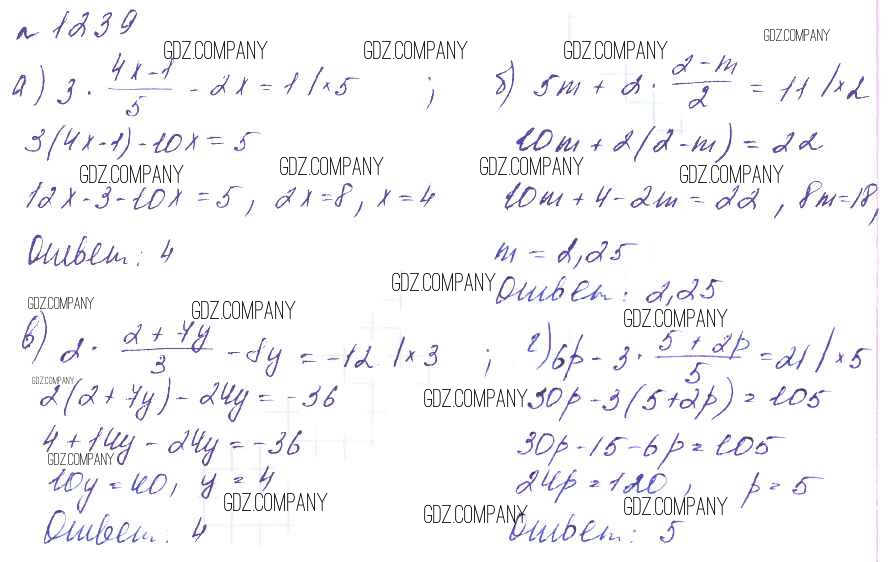 № 1239
GDZ.COMPANY GDZ.COMPANY GDZ.COMPANY GDZ.COMPANY
а) 3 · (4x-1)/5 - 2x = 1 /×5 ;
3(4x-1)-10x=5
GDZ.COMPANY GDZ.COMPANY
12x-3-10x=5, 2x=8, x=4
Ответ: 4
б) 5m + 2 · (2-m)/2 = 11 /×2
10m + 2(2-m) = 22
GDZ.COMPANY GDZ.COMPANY
10m+4-2m=22, 8m=18,
m = 2,25
GDZ.COMPANY
Ответ: 2,25
GDZ.COMPANY GDZ.COMPANY GDZ.COMPANY
в) 2 · (2+7y)/3 - 8y = -12 /×3 ;
GDZ.COMPANY
2(2+7y) - 24y = -36
4+14y - 24y = -36
GDZ.COMPANY
10y=40, y=4
GDZ.COMPANY
Ответ: 4
г) 6p - 3 · (5+2p)/5 = 21 /×5
GDZ.COMPANY
30p-3(5+2p) = 105
30p-15-6p=105
24p=120, p=5
GDZ.COMPANY GDZ.COMPANY
Ответ: 5